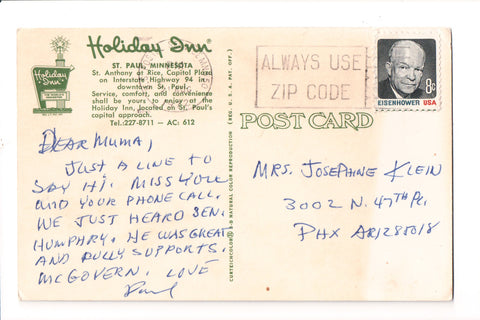 Holiday Inn®
ST. PAUL, MINNESOTA
St. Anthony at Rice, Capitol Plaza
on Interstate Highway 94 in
downtown St. Paul.
Service, comfort, and convenience
shall be yours to enjoy at the
Holiday Inn, located on St. Paul's
capitol approach.
Tel.: 227-8711 — AC: 612
Holiday Inn
DEAR MUMA,
JUST A LINE TO
SAY HI. MISS YOU
AND YOUR PHONE CALL.
WE JUST HEARD SEN.
HUMPHRY. HE WAS GREAT
AND FULLY SUPPORTS.
MCGOVERN. LOVE
Paul
CURTEICHCOLOR® 3-D NATURAL COLOR REPRODUCTION (REG. U.S.A. PAT. OFF.)
ALWAYS USE
ZIP CODE
8c
EISENHOWER USA
POST CARD
MRS. JOSEPHINE KLEIN
3002 N. 47TH PL.
PHX 85018